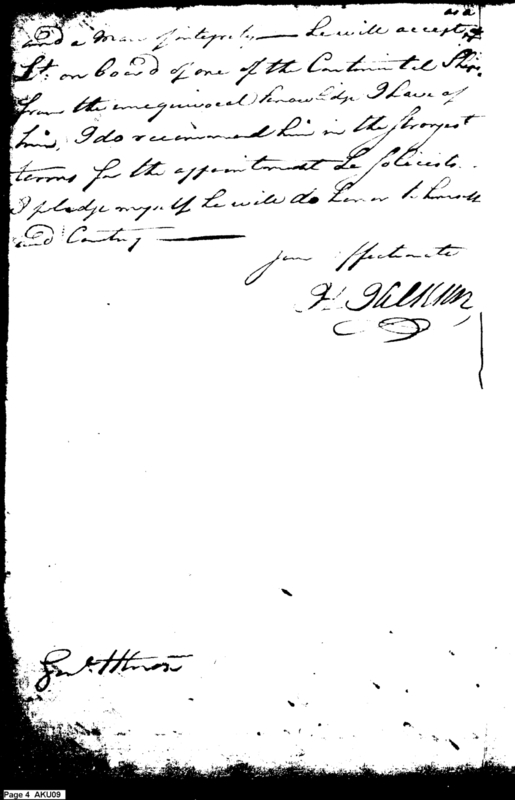 as a
and a man of integrity — he will accept
Lt. on board of one of the Continental Ships.
from the unequivocal knowledge I have of
him, I do recommend him in the strongest
terms for the appointment he solicits.
I pledge myself he will do honor to himself
and Country —
your affectionate
H Jackson
Genl. H Knox
Page 4 AKU09